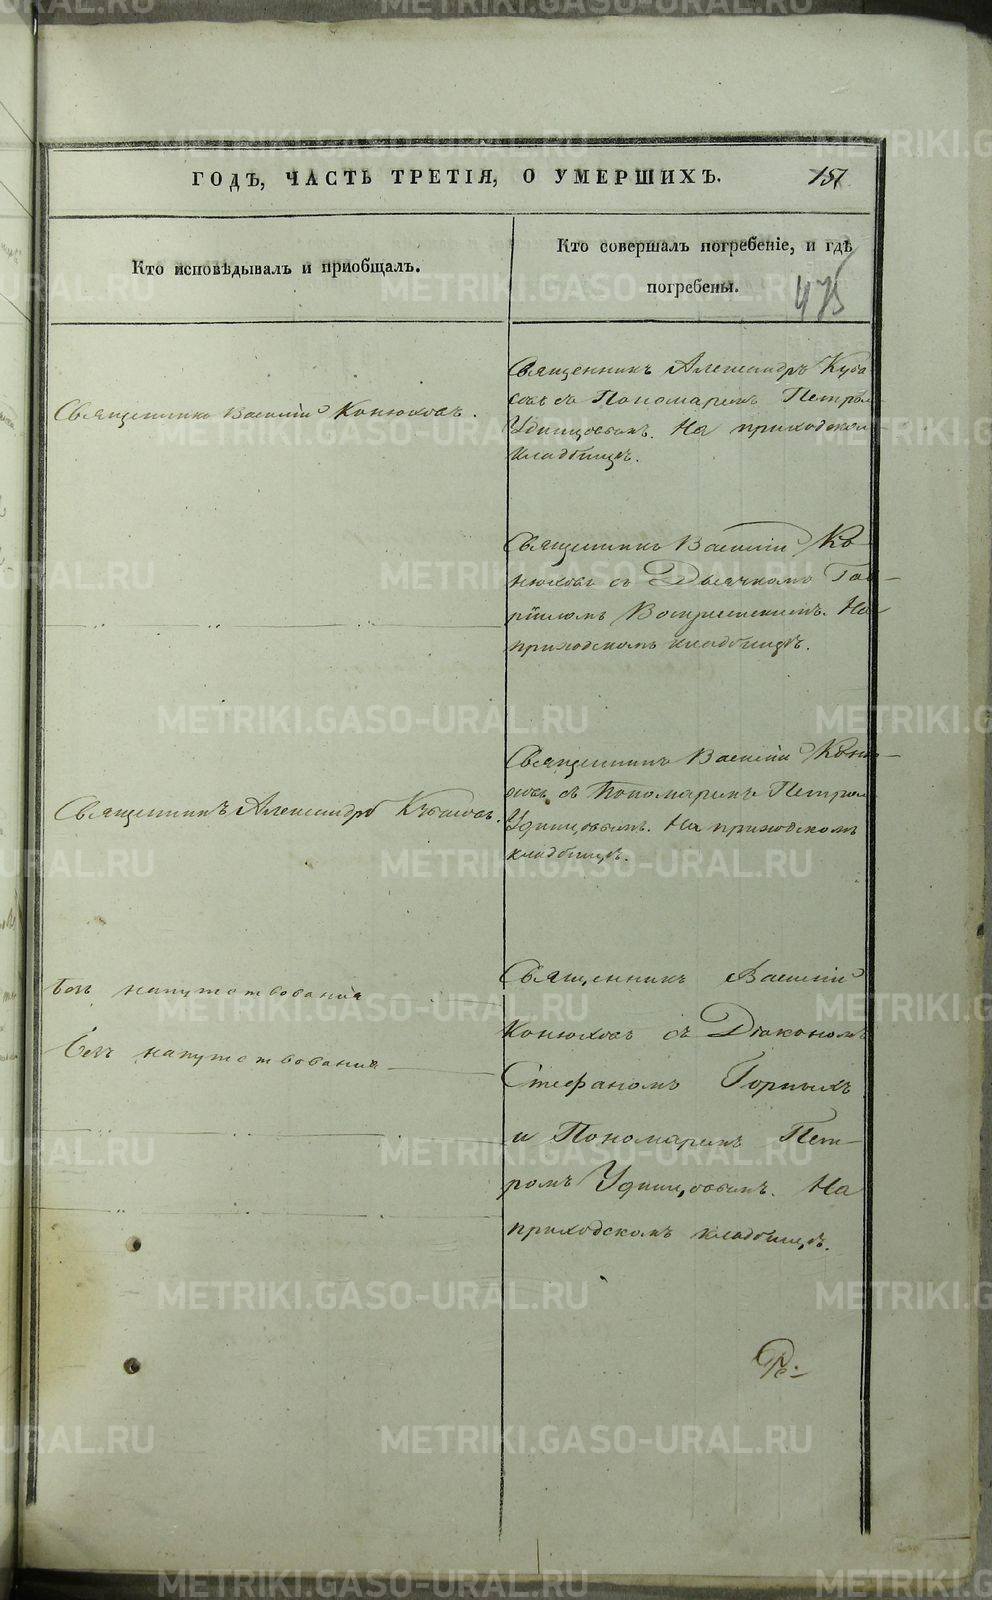 ГОДЪ, ЧАСТЬ ТРЕТІЯ, О УМЕРШИХЪ.
151
Кто исповѣдывалъ и пріобщалъ.
Кто совершалъ погребеніе, и гдѣ
погребены.
475
Священникъ Василій Конюховъ.
Священникъ Александръ Куба
совъ съ Пономаремъ Петромъ
Удинцовымъ. На приходском
кладбищѣ.
Священникъ Василій Ко
нюховъ съ Дьячкомъ Гав-
ріиломъ Воскресенскимъ. На
приходскомъ кладбищѣ.
Священникъ Александръ Кубасовъ.
Священникъ Василій Коню-
ховъ съ Пономаремъ Петром
Удинцовымъ. На приходскомъ
кладбищѣ.
Безъ напутствованія
Безъ напутствованія
Священникъ Василій
Конюховъ съ Діакономъ
Стефаномъ Горныхъ
и Пономаремъ Пет-
ромъ Удинцовымъ. На
приходскомъ кладбищѣ.
METRIKI.GASO-URAL.RU